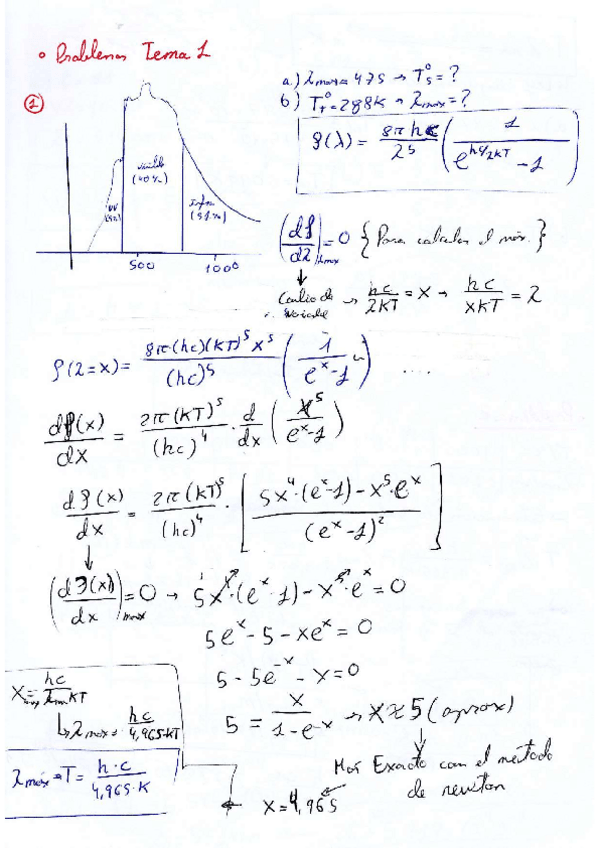 • Problemas Tema 1
①
a) λmax = 475 → Ts° = ?
b) TT° = 288K → λmax = ?
ρ(λ) = 8πhc/λ^5 (1/(e^(hc/λKT) - 1))
UV
visible
(40%)
(51%)
500
1000
(dρ/dλ)λmax = 0 {Para calcular el máx.}
↓
Cambio de variable → hc/λKT = x → hc/xKT = λ
ρ(λ=x) = 8π(hc)(KT)^5 x^5/(hc)^5 (1/(e^x - 1)) ....
dρ(x)/dx = 2π(KT)^5/(hc)^4 · d/dx (x^5/(e^x - 1))
dρ(x)/dx = 2π(KT)^5/(hc)^4 · [(5x^4·(e^x - 1) - x^5·e^x)/(e^x - 1)^2]
↓
(dρ(x)/dx)max = 0 → 5x^4·(e^x - 1) - x^5·e^x = 0
5e^x - 5 - xe^x = 0
5 - 5e^-x - x = 0
5 = x/(1 - e^-x) → x ≈ 5 (aprox)
↓
Más Exacto con el método
de newton
x = 4,965
xmax = hc/λmax KT
↳ λmax = hc/4,965·KT
λmáx · T = h·c/4,965·K